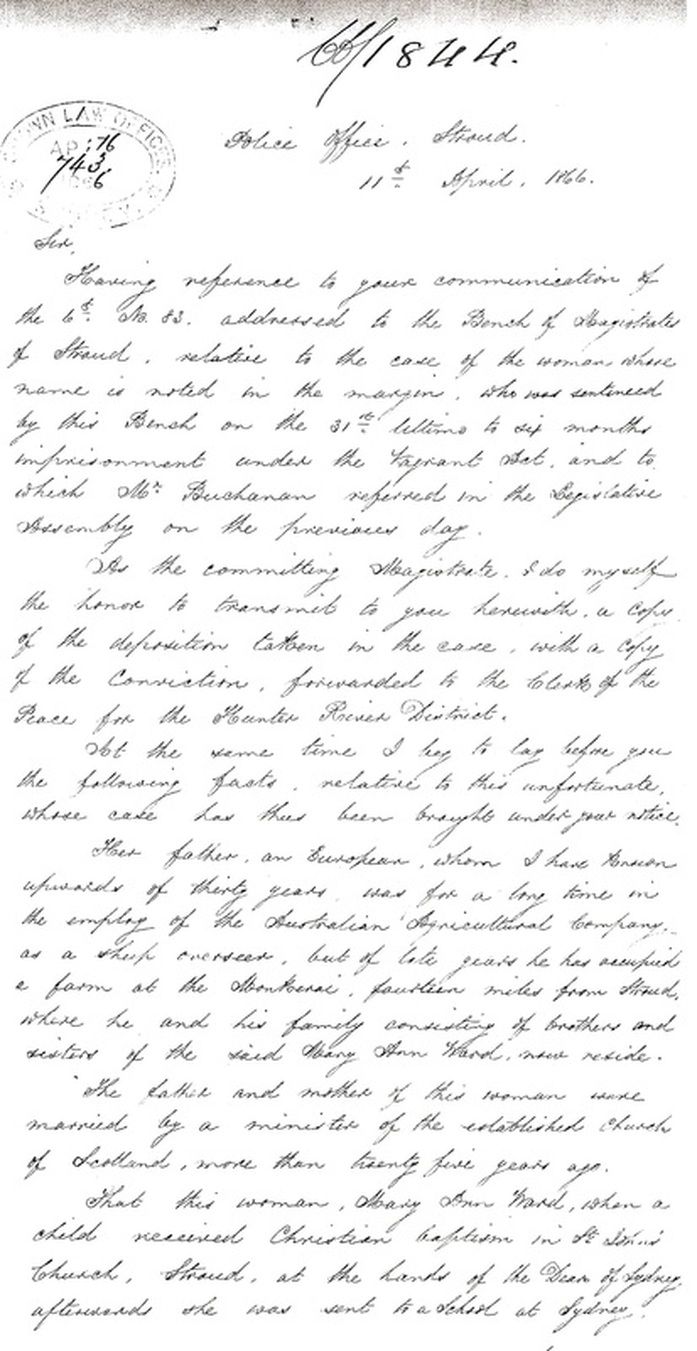 66/1844.
CROWN LAW OFFICES
AP 16
743
6
Police Office. Stroud.
11th April. 1866.
Sir,
Having reference to your communication of
the 6th. No. 83. addressed to the Bench of Magistrates
of Stroud, relative to the case of the woman whose
name is noted in the margin, who was sentenced
by this Bench on the 31st Ultimo to six months
imprisonment under the Vagrant Act, and to
which Mr. Buchanan referred in the Legislative
Assembly on the previous day.
As the committing Magistrate, I do myself
the honor to transmit to you herewith, a copy
of the deposition taken in the case, with a copy
of the Conviction, forwarded to the Clerk of the
Peace for the Hunter River District.
At the same time I beg to lay before you
the following facts, relative to this unfortunate,
whose case has thus been brought under your notice.
Her father, an European, whom I have known
upwards of thirty years, was for a long time in
the employ of the Australian Agricultural Company,
as a sheep overseer, but of late years he has occupied
a farm at the Monkerai, fourteen miles from Stroud,
where he and his family consisting of brothers and
sisters of the said Mary Ann Ward, now reside.
The father and mother of this woman were
married by a minister of the established church
of Scotland, more than twenty five years ago.
That this woman, Mary Ann Ward, when a
child received Christian baptism in St John's
Church, Stroud, at the hands of the Dean of Sydney,
afterwards she was sent to a School at Sydney,